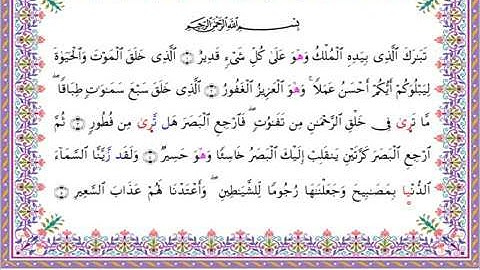 بِسْمِ ٱللَّهِ ٱلرَّحْمَٰنِ ٱلرَّحِيمِ
تَبَٰرَكَ ٱلَّذِى بِيَدِهِ ٱلْمُلْكُ وَهْوَ عَلَىٰ كُلِّ شَىْءٍ قَدِيرٌ ۝ ٱلَّذِى خَلَقَ ٱلْمَوْتَ وَٱلْحَيَوٰةَ
لِيَبْلُوَكُمْ أَيُّكُمْ أَحْسَنُ عَمَلًا ۚ وَهْوَ ٱلْعَزِيزُ ٱلْغَفُورُ ۝ ٱلَّذِى خَلَقَ سَبْعَ سَمَٰوَٰتٍ طِبَاقًا ۖ
مَّا تَرَىٰ فِى خَلْقِ ٱلرَّحْمَٰنِ مِن تَفَٰوُتٍ ۖ فَٱرْجِعِ ٱلْبَصَرَ هَل تَّرَىٰ مِن فُطُورٍ ۝ ثُمَّ
ٱرْجِعِ ٱلْبَصَرَ كَرَّتَيْنِ يَنقَلِبْ إِلَيْكَ ٱلْبَصَرُ خَاسِئًا وَهْوَ حَسِيرٌ ۝ وَلَقَد زَّيَّنَّا ٱلسَّمَآءَ
ٱلدُّنْيَا بِمَصَٰبِيحَ وَجَعَلْنَٰهَا رُجُومًا لِّلشَّيَٰطِينِ ۖ وَأَعْتَدْنَا لَهُمْ عَذَابَ ٱلسَّعِيرِ ۝